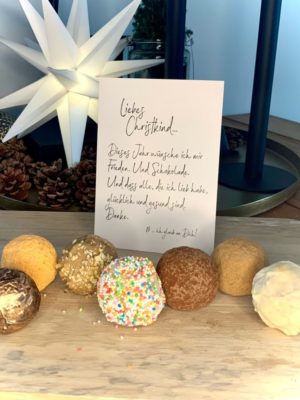 Liebes
Christkind...
Dieses Jahr wünsche ich mir
Frieden. Und Schokolade.
Und dass alle, die ich lieb habe,
glücklich und gesund sind.
Danke.
PS ...ich glaub an Dich!